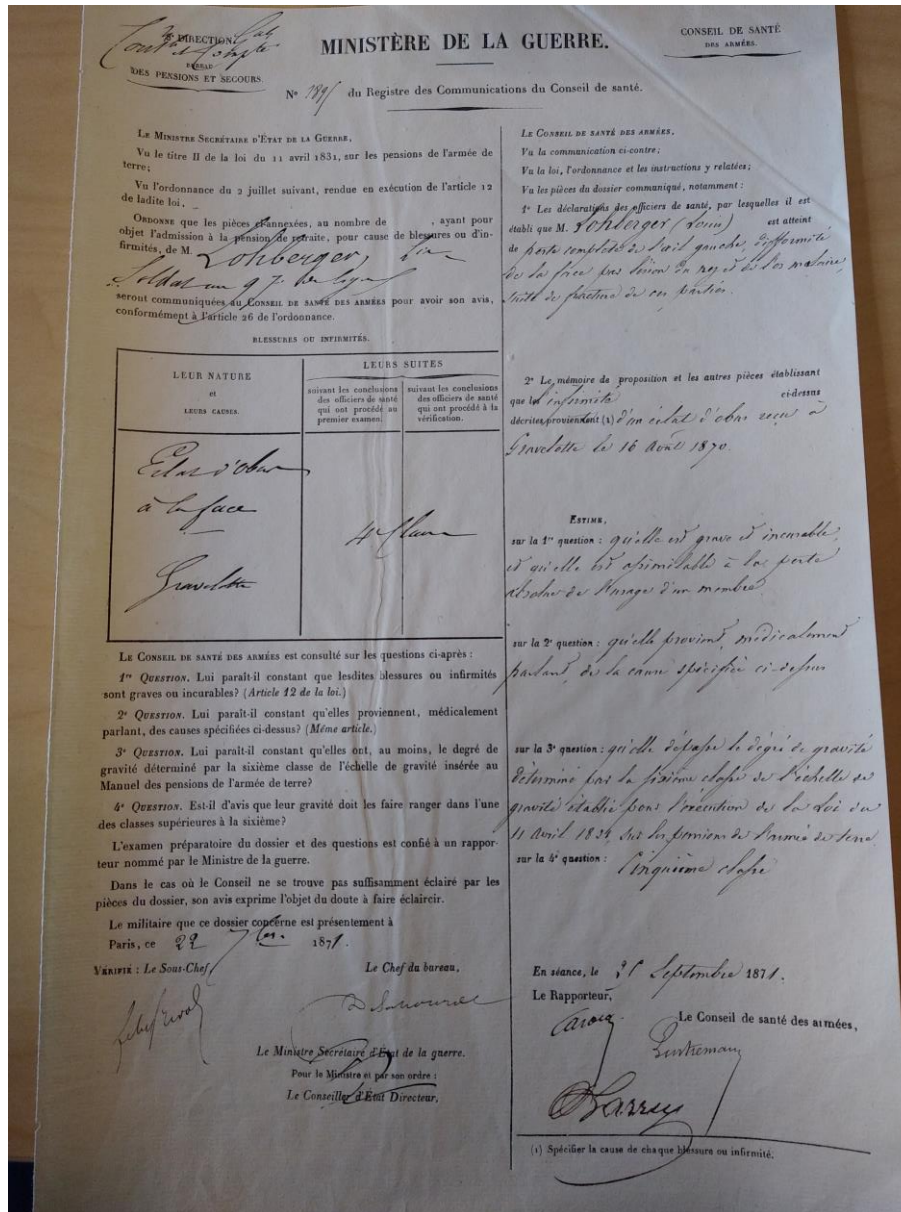 DIRECTION
BUREAU
DES PENSIONS ET SECOURS.
MINISTÈRE DE LA GUERRE.
CONSEIL DE SANTÉ
DES ARMÉES.
N° du Registre des Communications du Conseil de santé.
LE MINISTRE SECRÉTAIRE D'ÉTAT DE LA GUERRE,
Vu le titre II de la loi du 11 avril 1831, sur les pensions de l'armée de
terre;
Vu l'ordonnance du 2 juillet suivant, rendue en exécution de l'article 12
de ladite loi,
ORDONNE que les pièces ci-annexées, au nombre de , ayant pour
objet l'admission à la pension de retraite, pour cause de blessures ou d'in-
firmités, de M. Lohberger,
Soldat au 97 de ligne
seront communiquées au CONSEIL DE SANTÉ DES ARMÉES pour avoir son avis,
conformément à l'article 26 de l'ordonnance.
BLESSURES OU INFIRMITÉS.
LEUR NATURE
et
LEURS CAUSES.
LEURS SUITES
suivant les conclusions
des officiers de santé
qui ont procédé au
premier examen.
suivant les conclusions
des officiers de santé
qui ont procédé à la
vérification.
Eclat d'obus
à la face
Gravelotte
4e Classe
LE CONSEIL DE SANTÉ DES ARMÉES est consulté sur les questions ci-après :
1re QUESTION. Lui paraît-il constant que lesdites blessures ou infirmités
sont graves ou incurables? (Article 12 de la loi.)
2e QUESTION. Lui paraît-il constant qu'elles proviennent, médicalement
parlant, des causes spécifiées ci-dessus? (Même article.)
3e QUESTION. Lui paraît-il constant qu'elles ont, au moins, le degré de
gravité déterminé par la sixième classe de l'échelle de gravité insérée au
Manuel des pensions de l'armée de terre?
4e QUESTION. Est-il d'avis que leur gravité doit les faire ranger dans l'une
des classes supérieures à la sixième?
L'examen préparatoire du dossier et des questions est confié à un rappor-
teur nommé par le Ministre de la guerre.
Dans le cas où le Conseil ne se trouve pas suffisamment éclairé par les
pièces du dossier, son avis exprime l'objet du doute à faire éclaircir.
Le militaire que ce dossier concerne est présentement à
Paris, ce 22 7bre 1871.
VÉRIFIÉ : Le Sous-Chef,
Le Chef du bureau,
Le Ministre Secrétaire d'État de la guerre.
Pour le Ministre et par son ordre :
Le Conseiller d'État Directeur,
LE CONSEIL DE SANTÉ DES ARMÉES,
Vu la communication ci-contre;
Vu la loi, l'ordonnance et les instructions y relatées;
Vu les pièces du dossier communiqué, notamment :
1° Les déclarations des officiers de santé, par lesquelles il est
établi que M. Lohberger (Louis) est atteint
de perte complète de l'œil gauche, difformité
de la face par lésion du nez et de l'os malaire,
suite de fracture de ces parties.
2° Le mémoire de proposition et les autres pièces établissant
que les infirmité ci-dessus
décrites proviennent (1) d'un éclat d'obus reçu à
Gravelotte le 16 Août 1870.
ESTIME,
sur la 1re question : qu'elle est grave et incurable,
et qu'elle est assimilable à la perte
absolue de l'usage d'un membre
sur la 2e question : qu'elle provient, médicalement
parlant, de la cause spécifiée ci-dessus
sur la 3e question : qu'elle dépasse le dégré de gravité
déterminé par la sixième classe de l'échelle de
gravité établie pour l'exécution de la Loi du
11 avril 1831, sur les pensions de l'armée de terre
sur la 4e question : Cinquième classe
En séance, le Septembre 1871.
Le Rapporteur,
Le Conseil de santé des armées,
Larrey
(1) Spécifier la cause de chaque blessure ou infirmité.